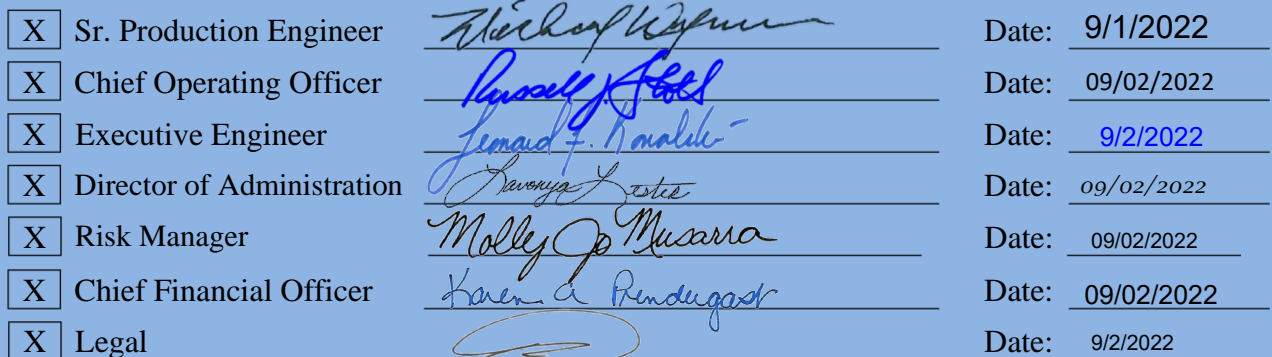 X Sr. Production Engineer Michael Date: 9/1/2022
X Chief Operating Officer Russell J. Date: 09/02/2022
X Executive Engineer Date: 9/2/2022
X Director of Administration Lavonya Lester Date: 09/02/2022
X Risk Manager Molly Jo Musarra Date: 09/02/2022
X Chief Financial Officer Karen A Prendergast Date: 09/02/2022
X Legal Date: 9/2/2022